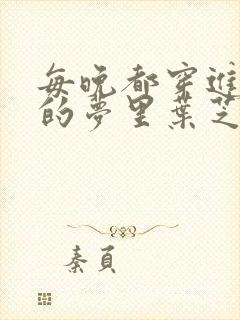 每晚都穿進
的夢里葉芝
秦頁